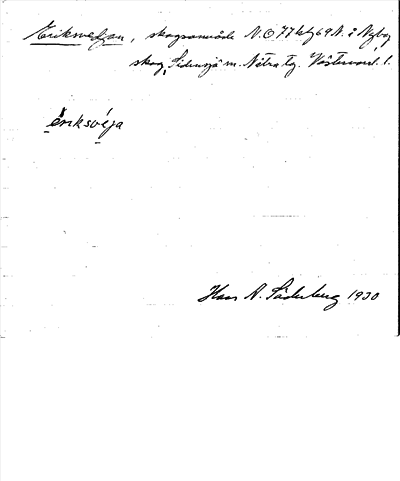 Eriksvedjan, skogsområde N.O 77 b, 69 N. i Nybygg
skog, Sidensjö sn. Nätra tg. Västernorrl. l.
ériksvéja
Hans A. Söderberg 1930